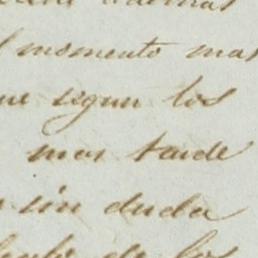 momento mas
segun los
mas tarde
sin duda
de los